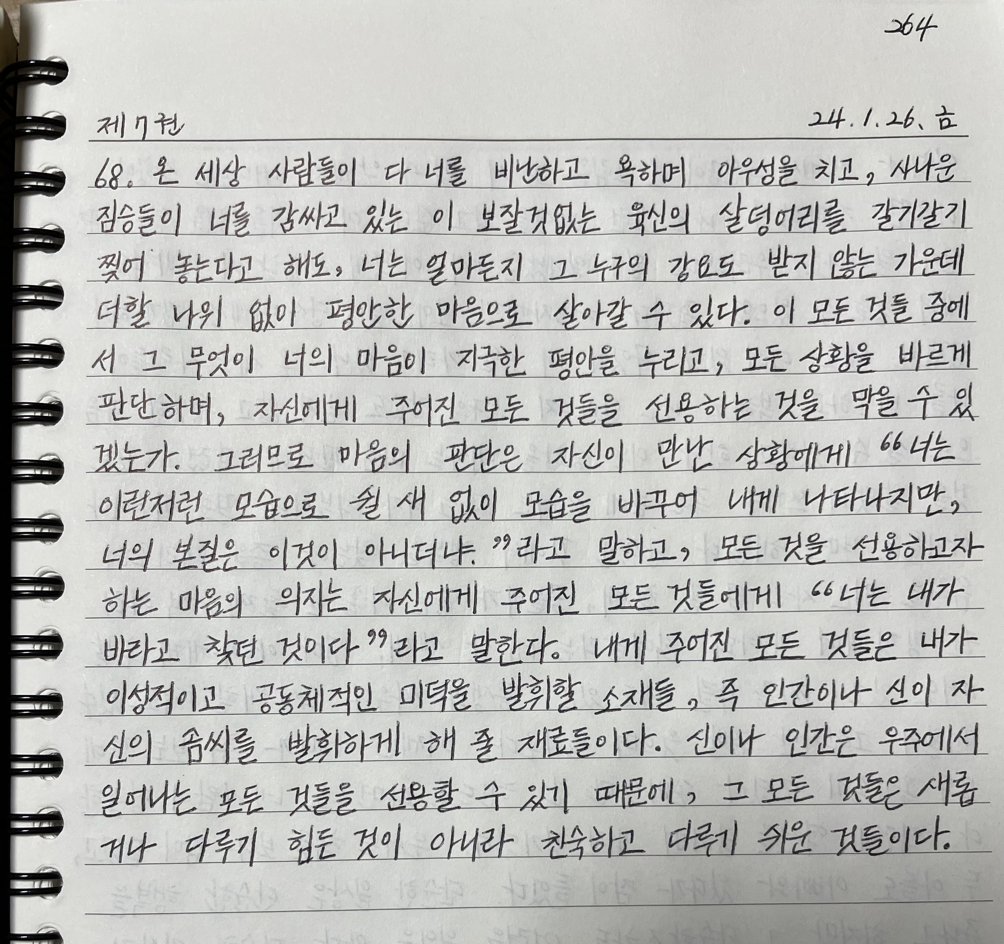 264
제7권 24.1.26. 금
68. 온 세상 사람들이 다 너를 비난하고 욕하며 아우성을 치고, 사나운
짐승들이 너를 감싸고 있는 이 보잘것없는 육신의 살덩어리를 갈기갈기
찢어 놓는다고 해도, 너는 얼마든지 그 누구의 강요도 받지 않는 가운데
더할 나위 없이 평안한 마음으로 살아갈 수 있다. 이 모든 것들 중에
서 그 무엇이 너의 마음이 지극한 평안을 누리고, 모든 상황을 바르게
판단하며, 자신에게 주어진 모든 것들을 선용하는 것을 막을 수 있
겠는가. 그러므로 마음의 판단은 자신이 만난 상황에게 “너는
이런저런 모습으로 쉴 새 없이 모습을 바꾸어 내게 나타나지만,
너의 본질은 이것이 아니더냐.”라고 말하고, 모든 것을 선용하고자
하는 마음의 의지는 자신에게 주어진 모든 것들에게 “너는 내가
바라고 찾던 것이다”라고 말한다. 내게 주어진 모든 것들은 내가
이성적이고 공동체적인 미덕을 발휘할 소재들, 즉 인간이나 신이 자
신의 솜씨를 발휘하게 해 줄 재료들이다. 신이나 인간은 우주에서
일어나는 모든 것들을 선용할 수 있기 때문에, 그 모든 것들은 새롭
거나 다루기 힘든 것이 아니라 친숙하고 다루기 쉬운 것들이다.